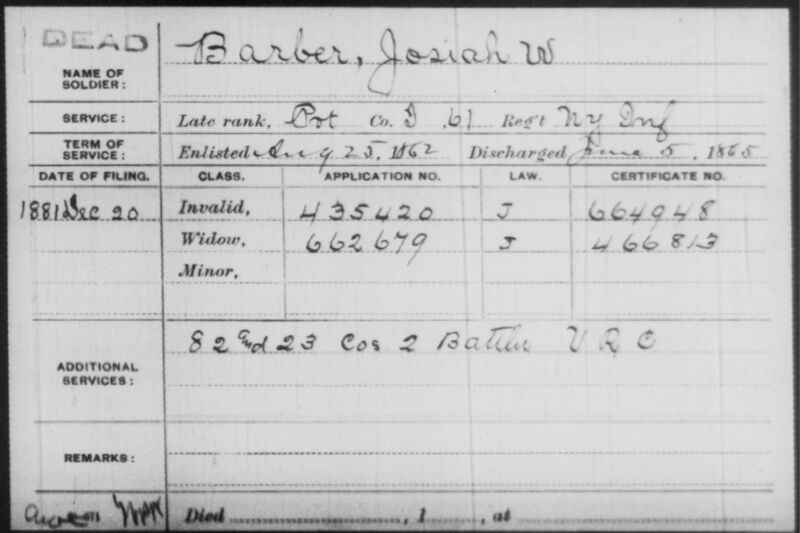 DEAD
Barber, Josiah W
NAME OF SOLDIER:
SERVICE: Late rank, Pvt Co. I, 61 Reg't NY Inf
TERM OF SERVICE: Enlisted Aug 25, 1862 Discharged June 5, 1865
DATE OF FILING. CLASS. APPLICATION NO. LAW. CERTIFICATE NO.
1881 Dec 20 Invalid, 435420 J 664948
Widow, 662679 J 466813
Minor,
82nd 23 Cos 2 Battln V R C
ADDITIONAL SERVICES:
REMARKS:
Died , 1 , at